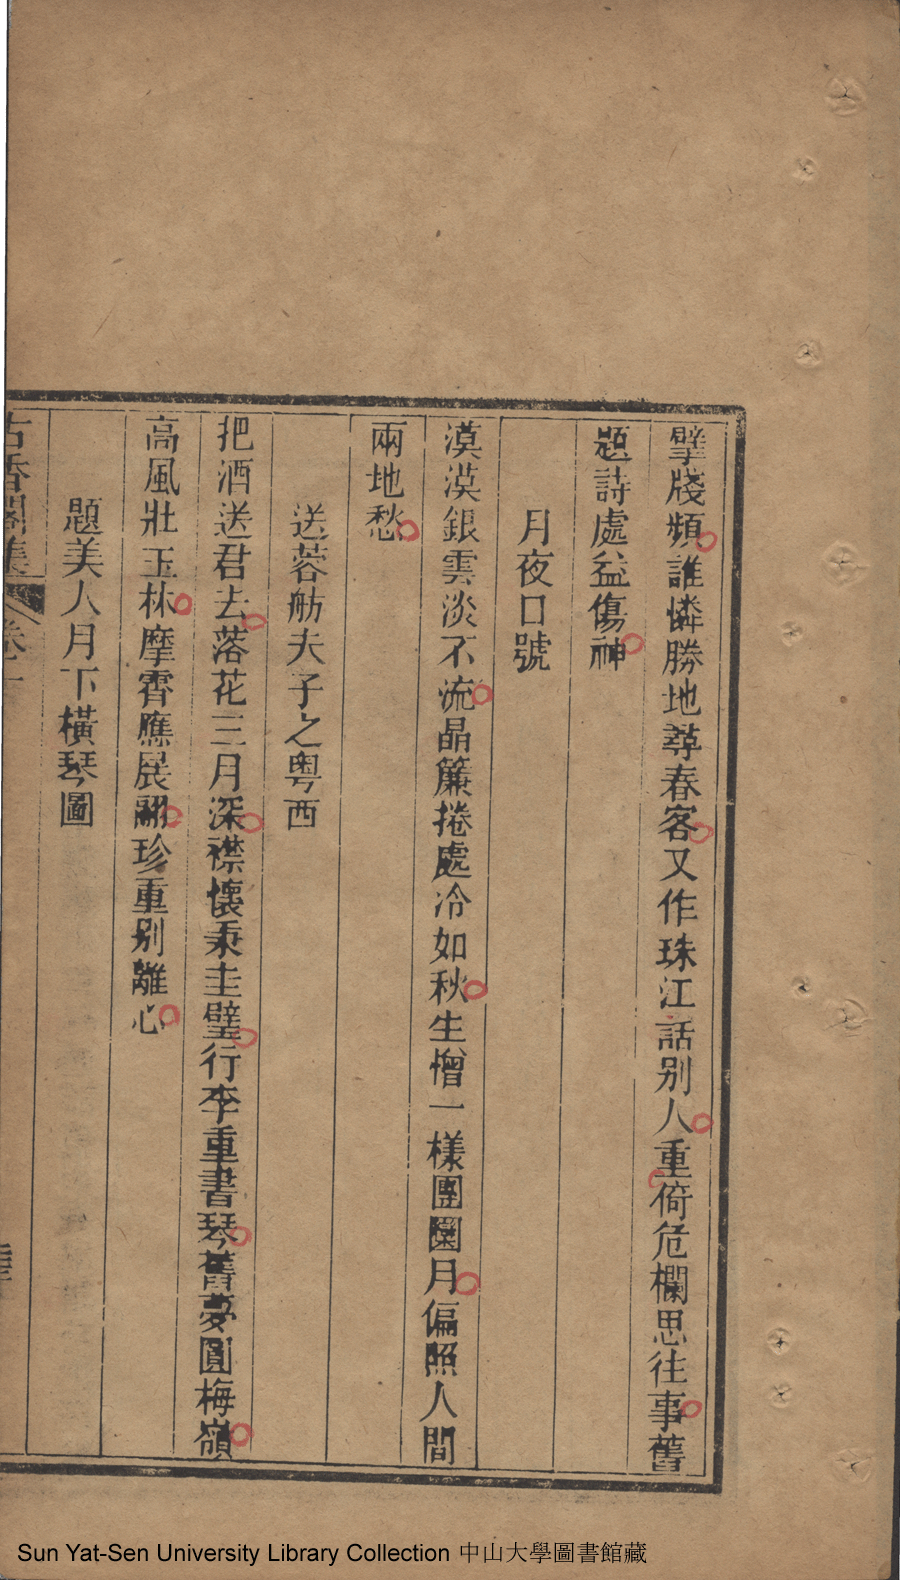 擘牋頻誰憐勝地尋春客又作珠江話別人重倚危欄思往事舊
題詩處益傷神
月夜口號
漠漠銀雲淡不流晶簾捲處冷如秋生憎一樣團圞月偏照人間
兩地愁
送蓉舫夫子之粤西
把酒送君去落花三月深襟懷秉圭璧行李重書琴舊夢圓梅嶺
高風壯玉林摩霄應展翮珍重别離心
題美人月下橫琴圖
古香閣集
卷一
Sun Yat-Sen University Library Collection 中山大學圖書館藏